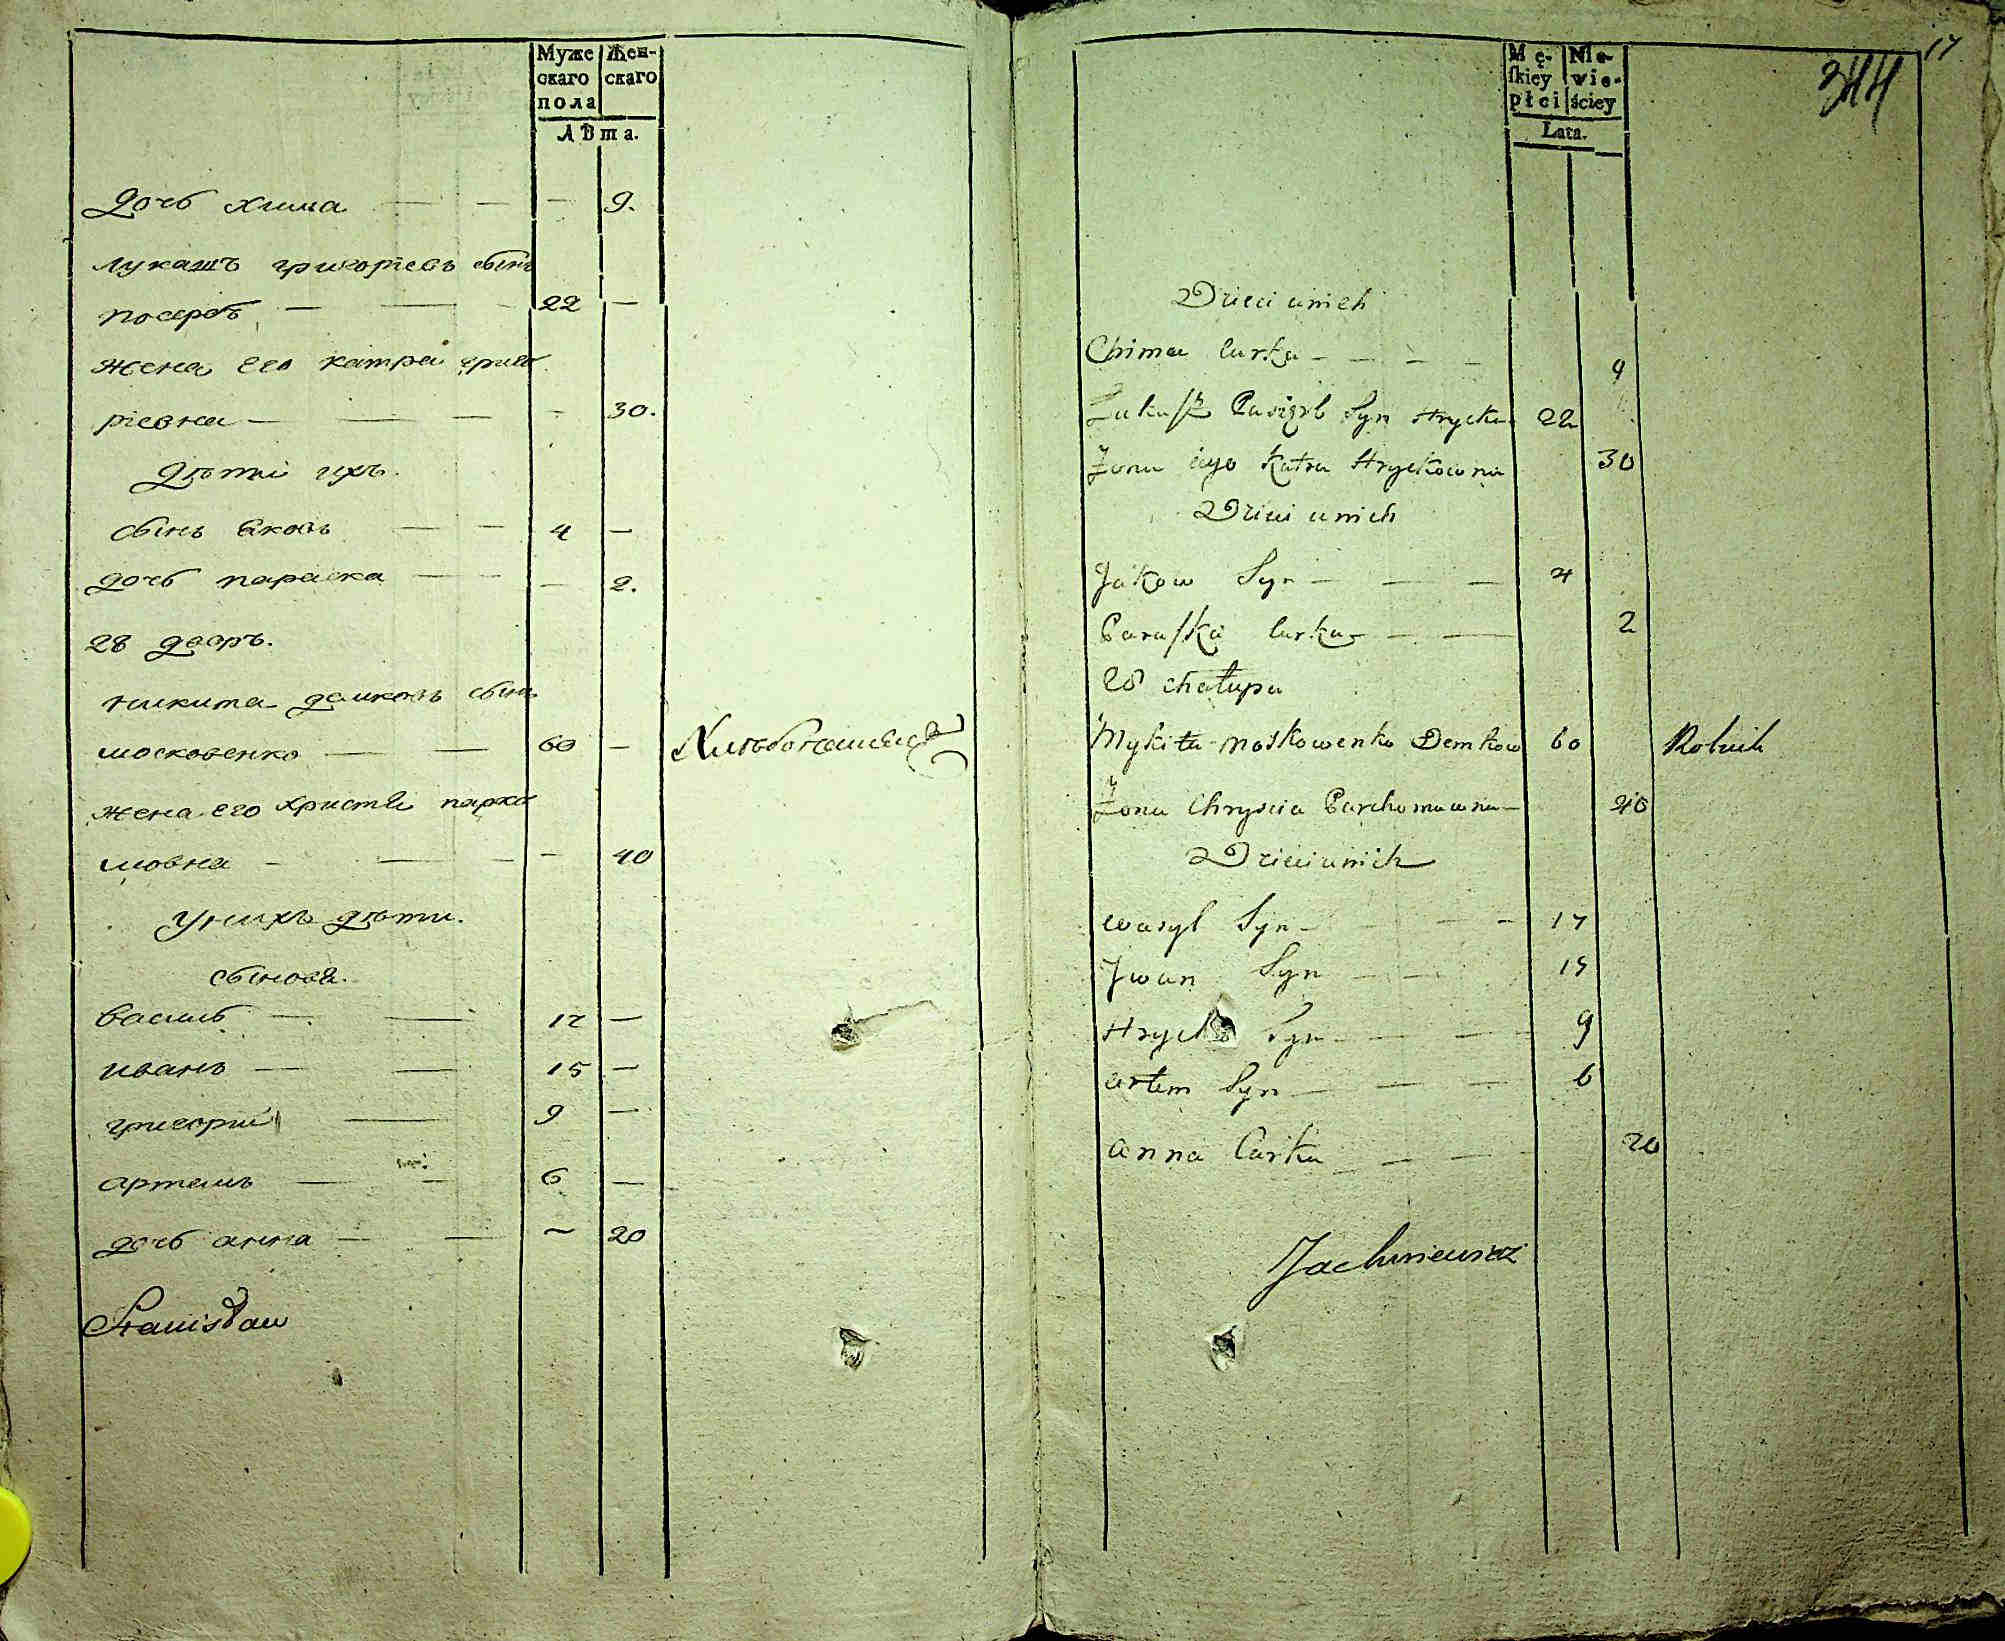 Муже
скаго
пола
Жен-
скаго
Лѣта.
дочь хима — — — 9.
лукашъ григорiевъ сынъ
посербъ — — 22 —
жена его катра григо
рiевна — — — — 30.
дѣти ихъ.
сынъ яковъ — — 4 —
дочь параска — — — 2.
28 дворъ.
никита демковъ сынъ
московенко — — 60 — Хлѣбопашецъ
жена его христя пархо
мовна — — — — 40
у нихъ дѣти.
сыновя.
василь — — 17 —
иванъ — — 15 —
григорий — 9 —
артемъ — — 6 —
дочь анна — — ~ 20
Stanisław
17
344
Mę-
skiey
płci
Nie-
wie-
ściey
Lata.
Dzieci u nich
Chima Curka — — — — 9
Łukasz Syn Hrycka 22
Żona iego Katra Hryckowna 30
Dzieci u nich
Jakow Syn — — — 4
Paraska Curka — — — 2
28 chałupa
Mykita Moskowenko Demkow 60 Rolnik
Żona Chryscia Parchomowna — 40
Dzieci u nich
Wasyl Syn — — — 17
Jwan Syn — — 15
Hrycko Syn — — — 9
Artem Syn — — — 6
Anna Curka — — — 20
Jachimowicz